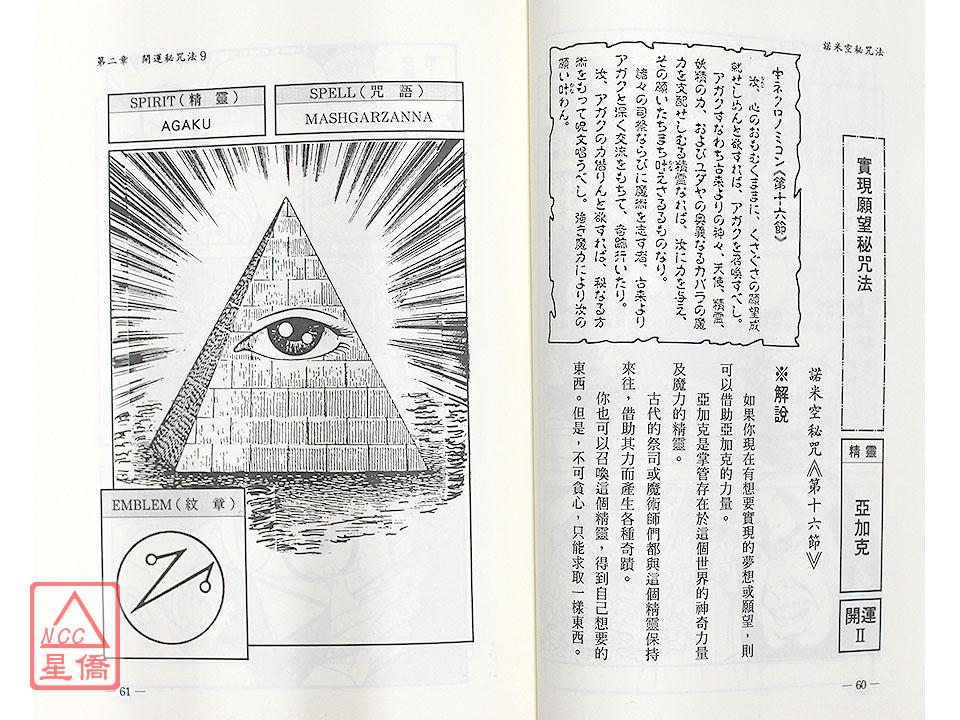 諾米空秘咒法
實現願望秘咒法
精靈
亞加克
開運
II
諾米空秘咒《第十六節》
ネクロノミコン《第十六節》
汝、心のおもむくままに、くさぐさの願望成
就せしめんと欲すれば、アガクを召喚すべし。
アガクすなわち古来よりの神々、天使、精霊、
妖精の力、およびユダヤの奥義なるカバラの魔
力を支配せしむる精霊なれば、汝に力を与え、
その願いたちまち叶えさるるものなり。
諸々の司祭ならびに魔術を志す者、古来より
アガクと深く交流をもちて、奇跡行いたり。
汝、アガクの力借りんと欲すれば、秘なる方
術をもって呪文唱うべし。強き魔力により汝の
願い叶わん。
※解說
如果你現在有想要實現的夢想或願望，則
可以借助亞加克的力量。
亞加克是掌管存在於這個世界的神奇力量
及魔力的精靈。
古代的祭司或魔術師們都與這個精靈保持
來往，借助其力而產生各種奇蹟。
你也可以召喚這個精靈，得到自己想要的
東西。但是，不可貪心，只能求取一樣東西。
— 60 —
第二章 開運秘咒法9
SPIRIT(精靈)
AGAKU
SPELL(咒語)
MASHGARZANNA
EMBLEM(紋章)
— 61 —
NCC
星僑